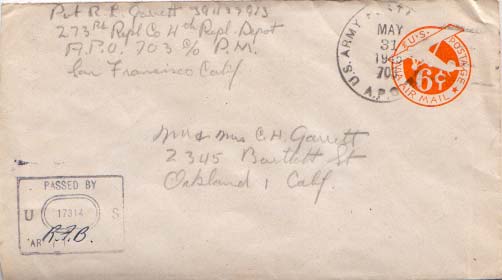 Pvt R. E. Garrett 39143913
273rd Repl Co 4th Repl. Depot
A.P.O. 703 c/o P.M.
San Francisco Calif
U.S. ARMY
MAY
31
A.P.O.
U.S. POSTAGE
VIA AIR MAIL
6¢
Mr & Mrs C. H. Garrett
2345 Bartlett St
Oakland, Calif.
PASSED BY
U 17314 S
R.F.B.